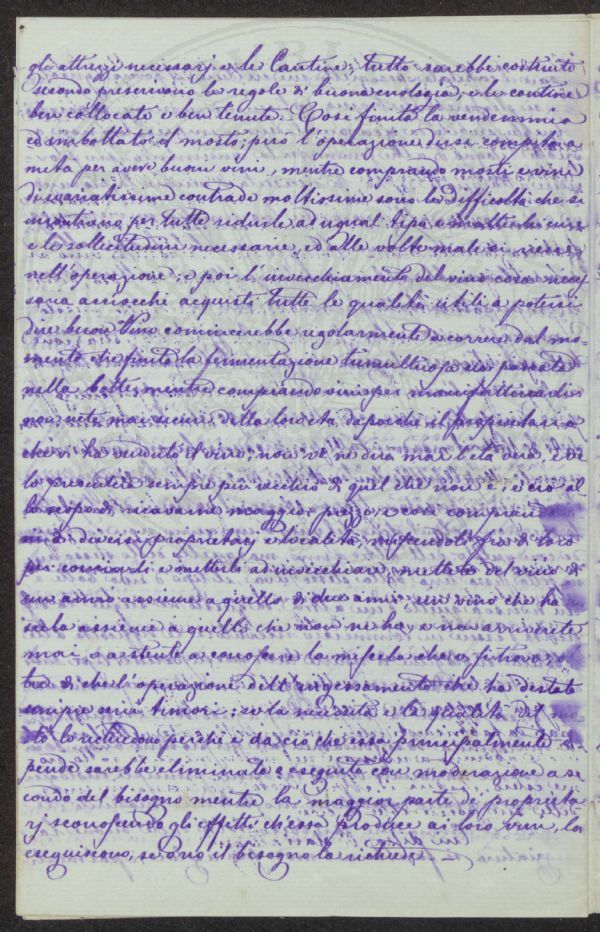 gli attrezzi necessarj e le Cantine; tutto sarebbe costruito
secondo preservono le regole di buona enologia, e le cantine
ben collocate e ben tenute. Così finita la vendemmia
ed imbottato il mosto, può l'operazione dirsi compita a
metà per avere buoni vini, mentre comprando mosti e vini
di svariatissime contrade moltissime sono le difficoltà che si
incontrano per tutte ridurle ad ugual tipo e molte le cure
e le sollecitudini necessarie, ed alle volte male si riesce
nell'operazione; e poi l'invecchiamento del vino cosa neces
saria acciocchè acquisti tutte le qualità utili a potersi
dire buon Vino comincerebbe regolarmente a correre dal mo-
mento che finita la fermentazione tumultuosa sia passato
nella botte, mentre comprando vini per manifatturarli
non siete mai sicuri della loro età, dapoichè il proprietario
che vi ha venduto il vino, non ve ne dirà mai l'età vera, e ve
lo presenterà sempre più vecchio di quel che non è; e ciò al
lo scopo di ricavarne maggior prezzo, e così comprendo
vini di diversi proprietarj e località, mescendoli fra di loro
per conciarli e metterli ad invecchiare, mettete del vino di
un anno assieme a quello di due anni, un vino che ha
assieme a quello che non ne ha, e non arriverete
mai o a stento a conoscere la miscela che vi trovo; ol
tre di che l'operazione dell'ingessamento che ha destato
sempre serii timori; se la necessità e la qualità del mo
sto lo richiedono perchè è da ciò che essa principalmente di
pende sarebbe eliminata o eseguita con moderazione a se
condo del bisogno mentre la maggior parte de' proprieta
rj sconoscendo gli effetti ch'essa produce ai loro vini, la
eseguiscono, se o no il bisogno la richiede.